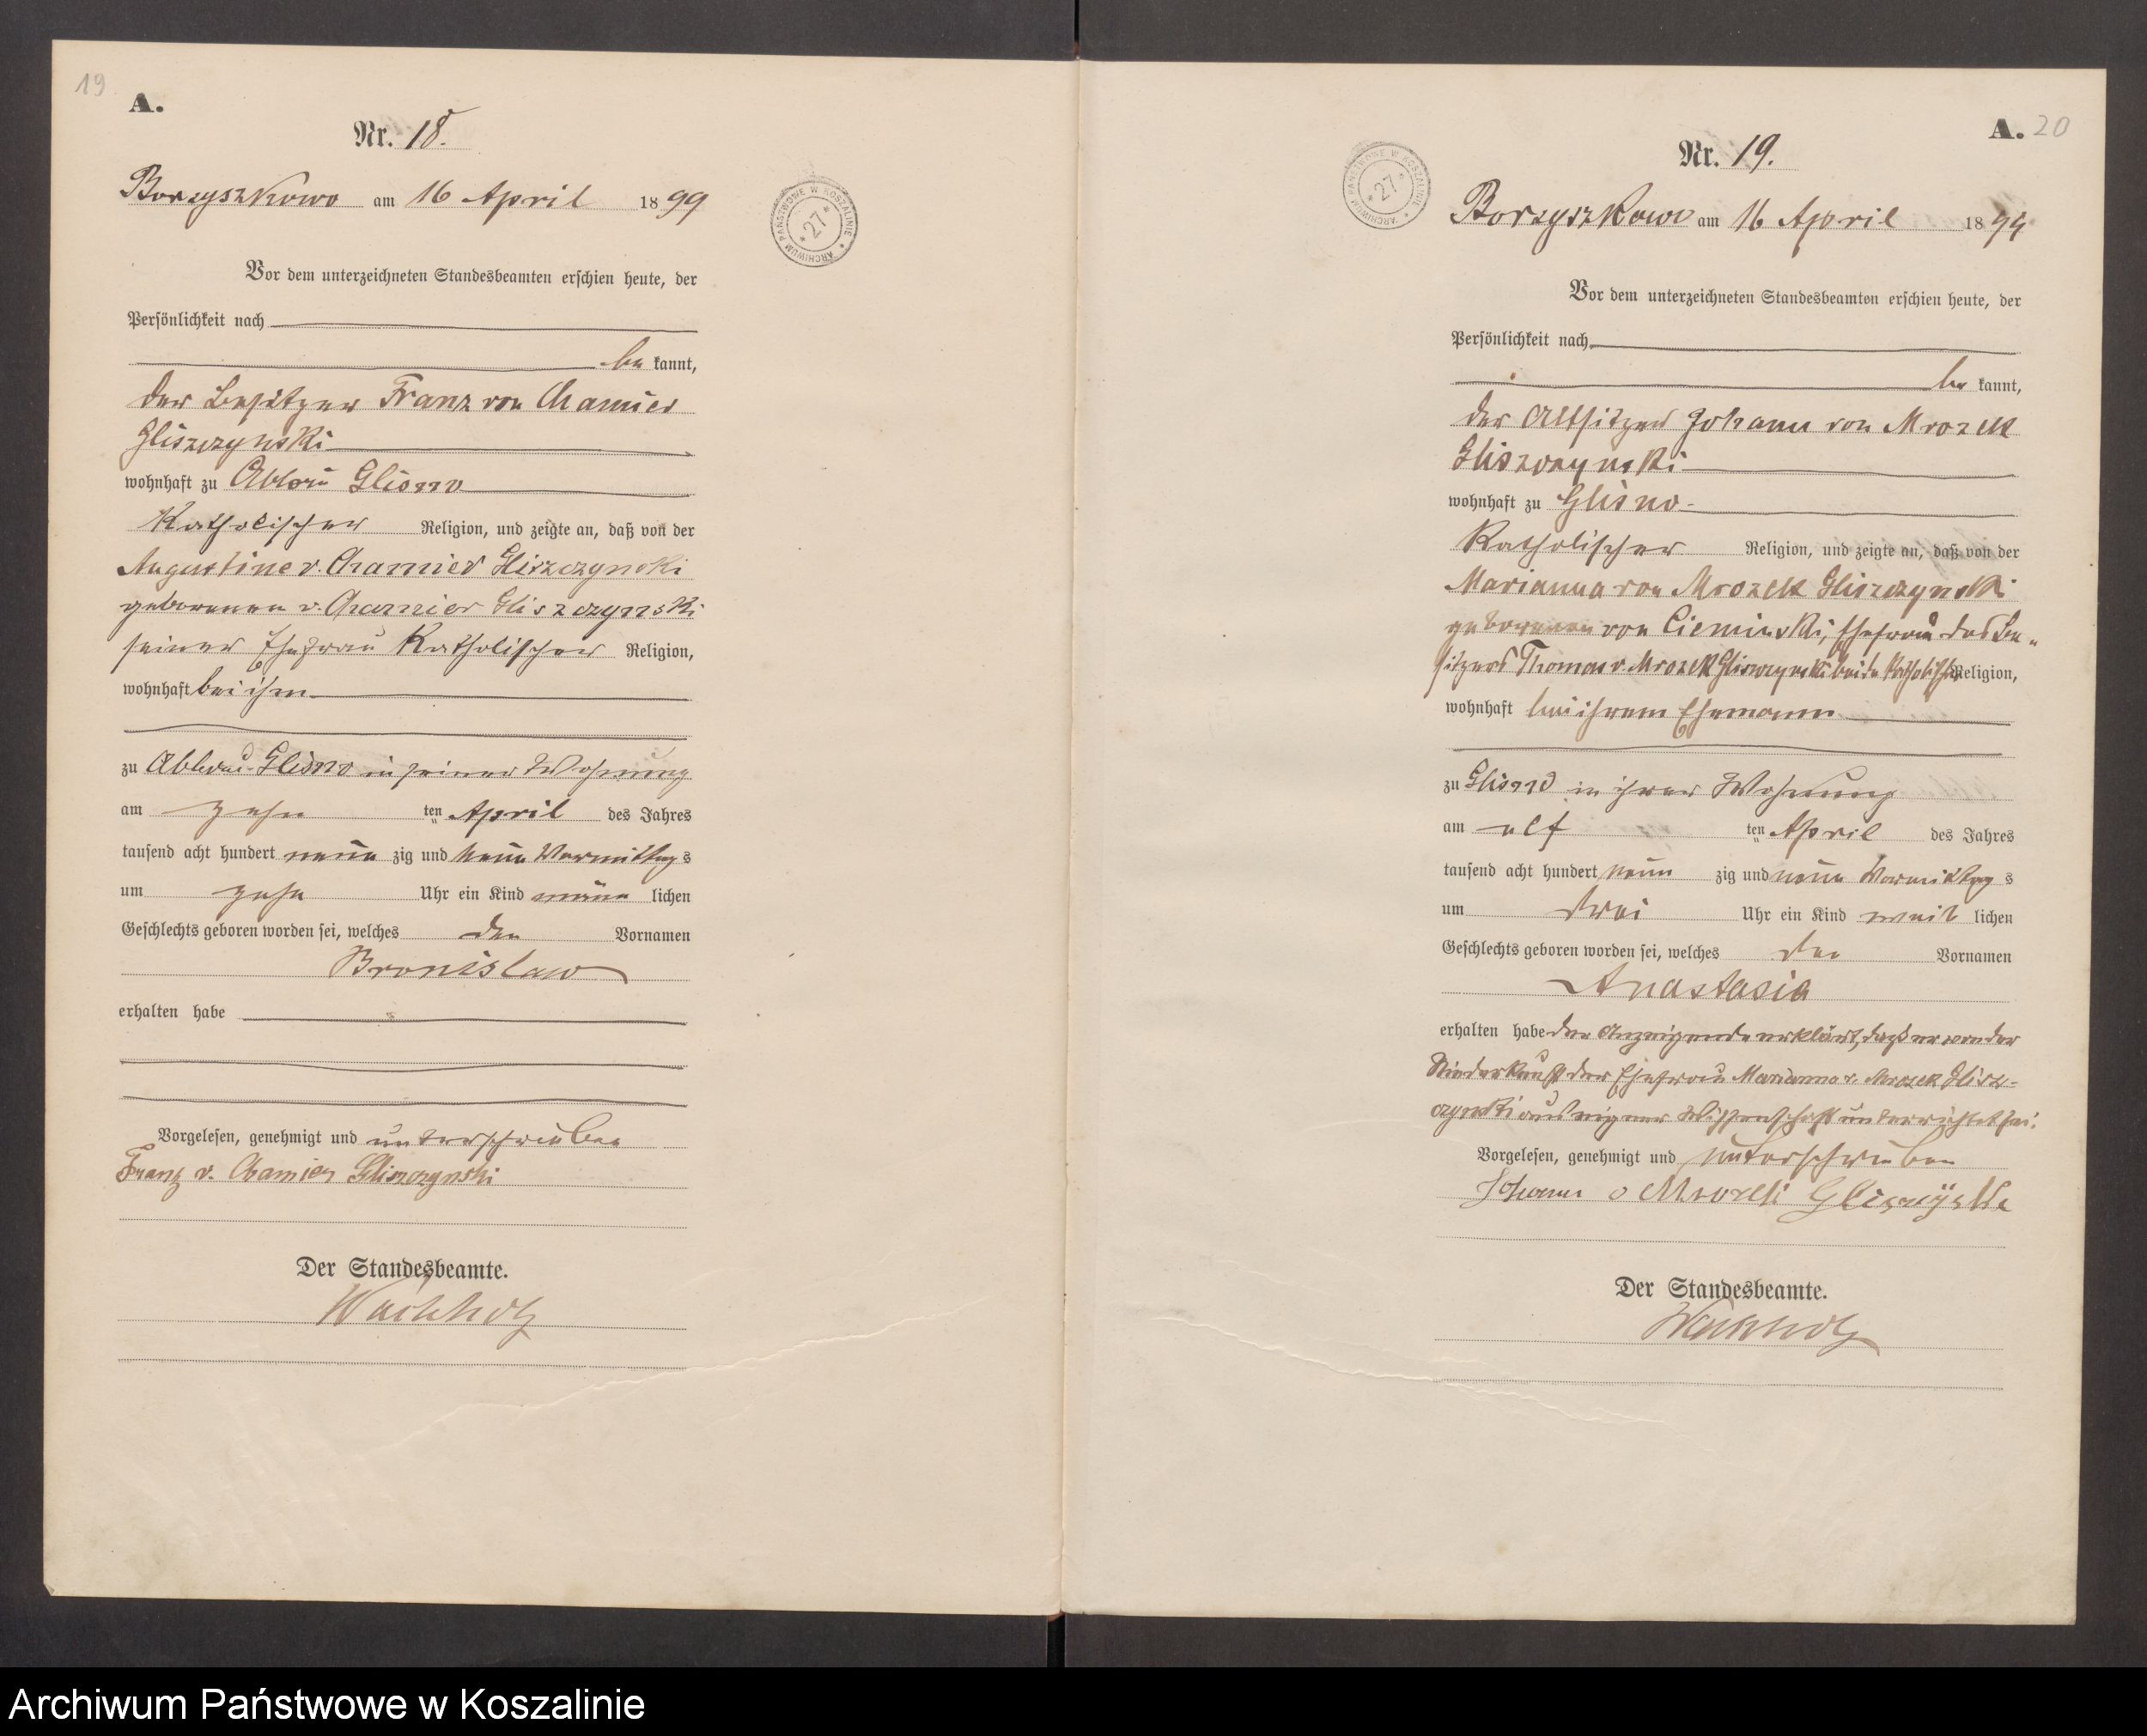 19
A.
Nr. 18.
Borzyszkowo am 16 April 1899
Vor dem unterzeichneten Standesbeamten erschien heute, der
Persönlichkeit nach
be kannt,
der Besitzer Franz von Chamier
Gliszczynski
wohnhaft zu Abbau Glisno
Katholischer Religion, und zeigte an, daß von der
Augustine v. Chamier Gliszczynski
geborenen v. Chamier Gliszczynski
seiner Ehefrau Katholischer Religion,
wohnhaft bei ihm
zu Abbau-Glisno in seiner Wohnung
am zehn ten April des Jahres
tausend acht hundert neun zig und neun Vormittag s
um zehn Uhr ein Kind männ lichen
Geschlechts geboren worden sei, welches den Vornamen
Bronislaw
erhalten habe
Vorgelesen, genehmigt und unterschrieben
Franz v. Chamier Gliszczynski
Der Standesbeamte.
Wachholz
ARCHIWUM PAŃSTWOWE W KOSZALINIE
* 27 *
A. 20
Nr. 19.
Borzyszkowo am 16 April 1899
Vor dem unterzeichneten Standesbeamten erschien heute, der
Persönlichkeit nach
be kannt,
der Altsitzer Johann von Mrozek
Gliszczynski
wohnhaft zu Glisno
Katholischer Religion, und zeigte an, daß von der
Marianna von Mrozek Gliszczynski
geborenen von Cieminski, Ehefrau des Be-
sitzers Thomas v. Mrozek Gliszczynski beide katholischer Religion,
wohnhaft bei ihrem Ehemann
zu Glisno in ihrer Wohnung
am elf ten April des Jahres
tausend acht hundert neun zig und neun Vormittag s
um drei Uhr ein Kind weib lichen
Geschlechts geboren worden sei, welches den Vornamen
Anastasia
erhalten habe der Anzeigende erklärt, daß er von der
Niederkunft der Ehefrau Marianna v. Mrozek Glisz-
czynski aus eigener Wissenschaft unterrichtet sei.
Vorgelesen, genehmigt und unterschrieben
Johann v Mrozek
Der Standesbeamte.
Wachholz
ARCHIWUM PAŃSTWOWE W KOSZALINIE
* 27 *
Archiwum Państwowe w Koszalinie